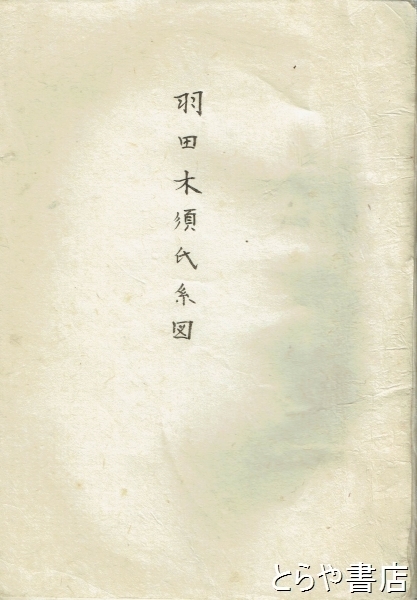 羽田木須氏系図
とらや書店